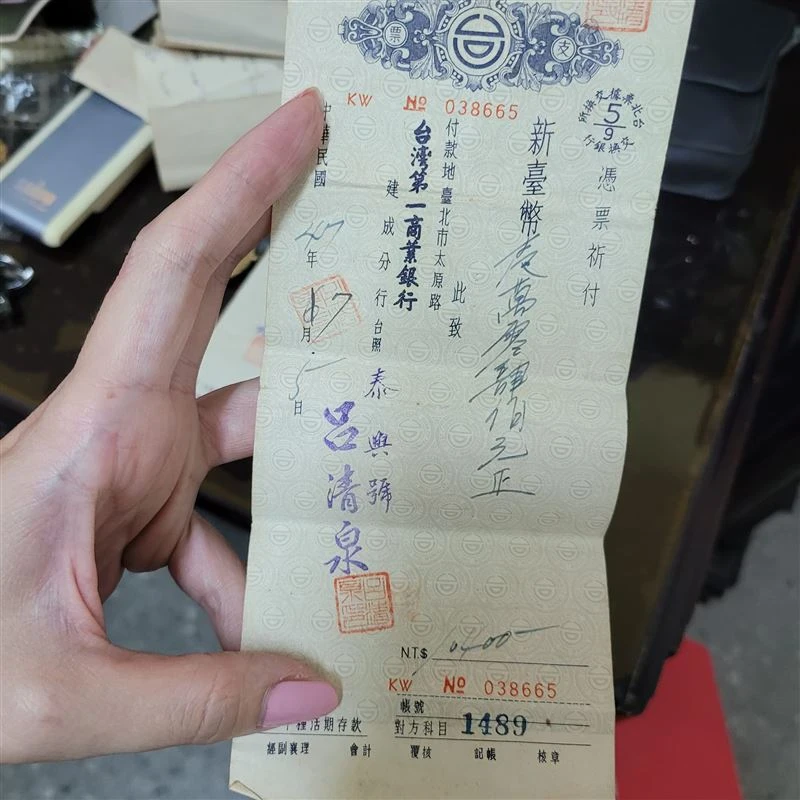 支票
KW № 038665
台北票據交換所
5/9
交換銀行
憑票祈付
新臺幣壹萬零肆佰元正
此致
付款地臺北市太原路
台灣第一商業銀行
建成分行台照
泰興號
呂清泉
中華民國47年7月5日
NT.$ 10400-
KW № 038665
帳號
種活期存款
對方科目 1489
經副襄理 會計 覆核 記帳 核章